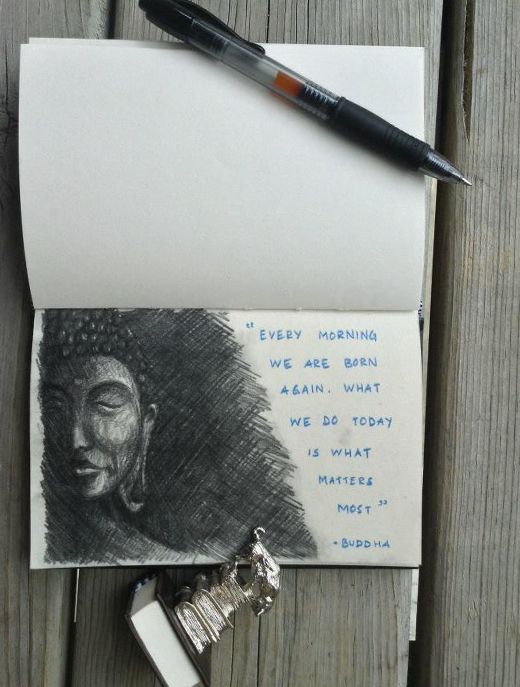 "EVERY MORNING
WE ARE BORN
AGAIN. WHAT
WE DO TODAY
IS WHAT
MATTERS
MOST"
-BUDDHA